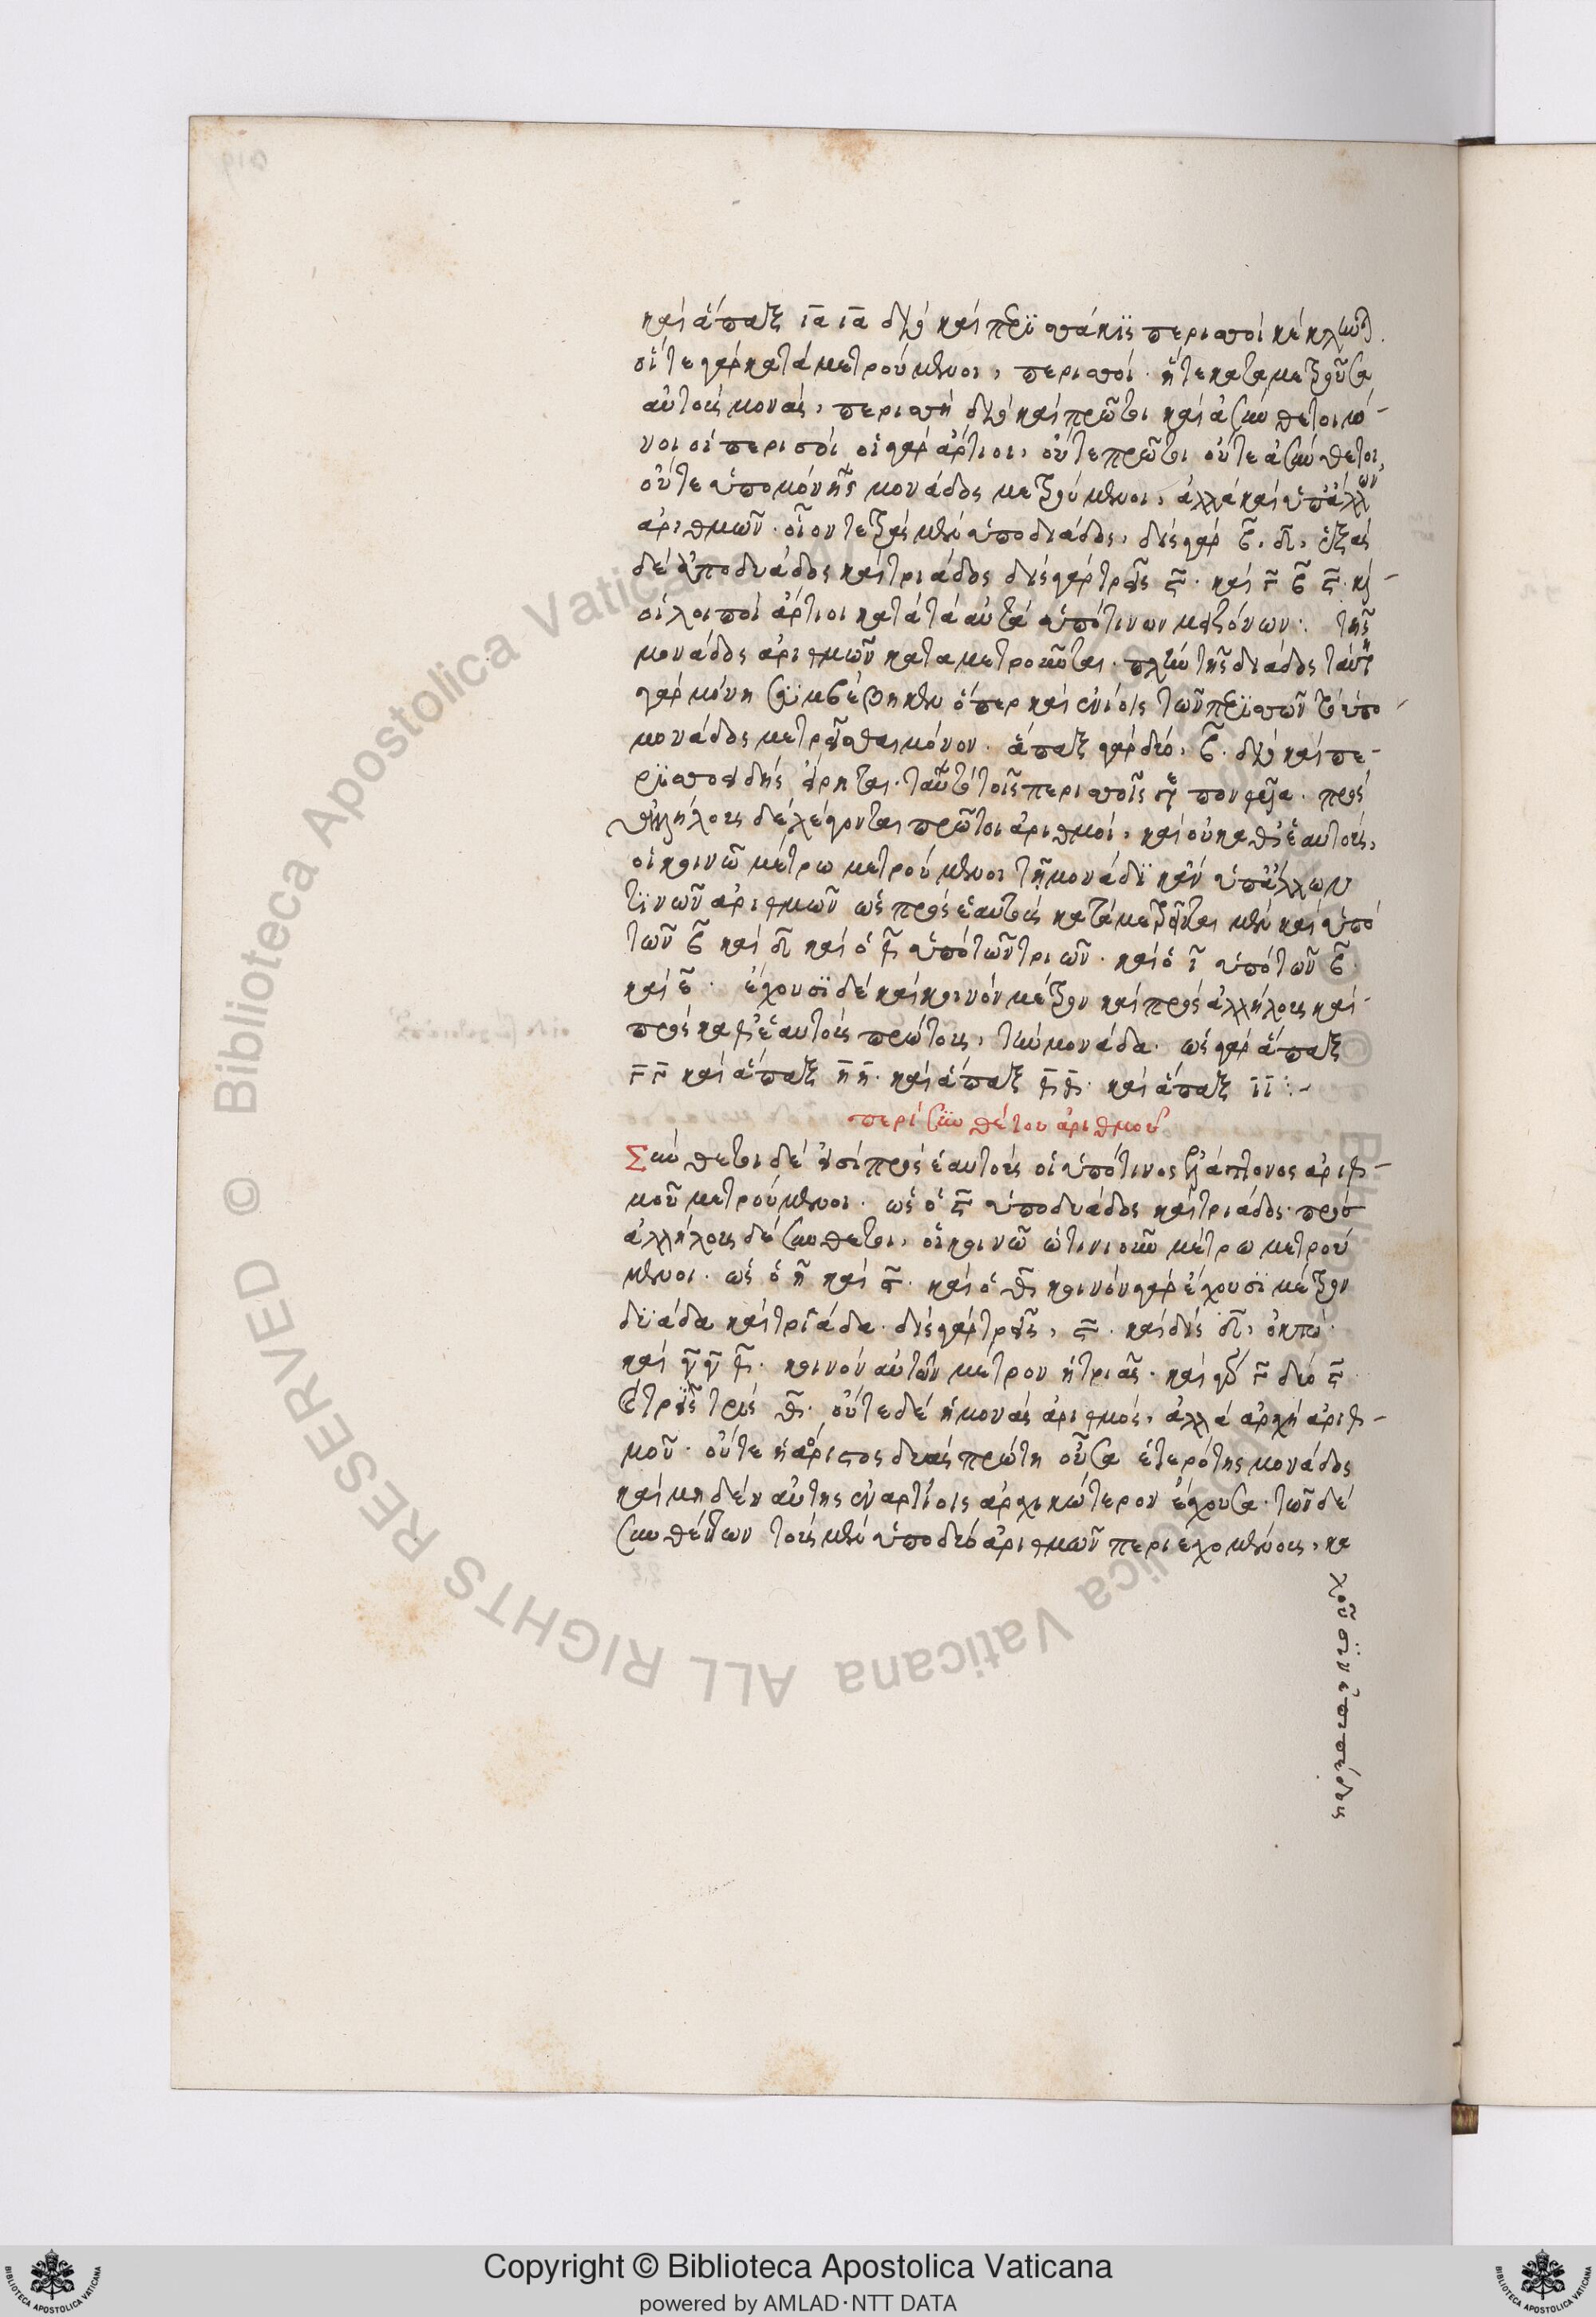 καὶ ἅπαξ ια ια διὸ καὶ περισσάκις περισσοὶ κέκληνται.
οἵ τε γὰρ καταμετρούμενοι, περισσοί. ἥ τε καταμετροῦσα
αὐτοὺς μονὰς, περισσή διὸ καὶ πρῶτοι καὶ ἀσύνθετοι μό-
νοι οἱ περισσοί οἱ γὰρ ἄρτιοι, οὔτε πρῶτοι οὔτε ἀσύνθετοι,
οὔτε ὑπὸ μόνης μονάδος μετρούμενοι, ἀλλὰ καὶ ὑπ' ἄλλων
ἀριθμῶν. οἷον τετρὰς μὲν ὑπὸ δυάδος, δὶς γὰρ β, δ, ἑξὰς
δὲ ὑπὸ δυάδος καὶ τριάδος δὶς γὰρ τρεῖς ϛ. καὶ γ β ϛ. καὶ
οἱ λοιποὶ ἄρτιοι κατὰ τὰ αὐτὰ ὑπό τινων μειζόνων. τῆς
μονάδος ἀριθμῶν καταμετροῦνται. πλὴν τῆς δυάδος ταύτῃ
γὰρ μόνῃ συμβέβηκεν ὅπερ καὶ ἐνίοις τῶν περισσῶν τὸ ὑπὸ
μονάδος μετρεῖσθαι μόνον. ἅπαξ γὰρ δύο, β. διὸ καὶ πε-
ρισσοειδὴς εἴρηται. ταὐτὸ τοῖς περισσοῖς πεπονθυῖα. πρὸς
ἀλλήλους δὲ λέγονται πρῶτοι ἀριθμοί, καὶ οὐ καθ' ἑαυτοὺς,
οἱ κοινῷ μέτρῳ μετρούμενοι τῇ μονάδι κἂν ὑπ' ἄλλων
τινῶν ἀριθμῶν ὡς πρὸς ἑαυτοὺς καταμετροῦνται μὲν καὶ ὑπὸ
τῶν β καὶ δ καὶ ὁ θ ὑπὸ τῶν τριῶν. καὶ ὁ ι ὑπὸ τῶν β.
καὶ ε. ἔχουσι δὲ καὶ κοινὸν μέτρον καὶ πρὸς ἀλλήλους καὶ
πρὸς καθ' ἑαυτοὺς πρώτους, τὴν μονάδα. ὡς γὰρ ἅπαξ
γ γ καὶ ἅπαξ η η. καὶ ἅπαξ θ θ. καὶ ἅπαξ ι ι :-
περὶ συνθέτου ἀριθμοῦ
Σύνθετοι δέ εἰσι πρὸς ἑαυτοὺς οἱ ὑπό τινος ἐλάττονος ἀριθ-
μοῦ μετρούμενοι. ὡς ὁ ϛ ὑπὸ δυάδος καὶ τριάδος. πρὸς
ἀλλήλους δὲ σύνθετοι, οἱ κοινῷ ᾡτινιοῦν μέτρῳ μετρού
μενοι. ὡς ὁ η καὶ ϛ. καὶ ὁ θ κοινὸν γὰρ ἔχουσι μέτρον
δυάδα καὶ τριάδα. δὶς γὰρ τρεῖς, ϛ. καὶ δὶς δ, ὀκτώ.
καὶ γ γ θ. κοινὸν αὐτῶν μέτρον ἡ τριάς. καὶ γὰρ γ δύο ϛ
καὶ τρεῖς τρὶς θ. οὔτε δὲ ἡ μονὰς ἀριθμός, ἀλλὰ ἀρχὴ ἀριθ-
μοῦ. οὔτε ἡ ἀόριστος δυὰς πρώτη οὖσα ἑτερότης μονάδος
καὶ μηδὲν αὐτῆς ἐν ἀρτίοις ἀρχικώτερον ἔχουσα. τῶν δὲ
συνθέτων τοὺς μὲν ὑπὸ δύο ἀριθμῶν περιεχομένους, κα
λοῦσιν ἐπιπέδους